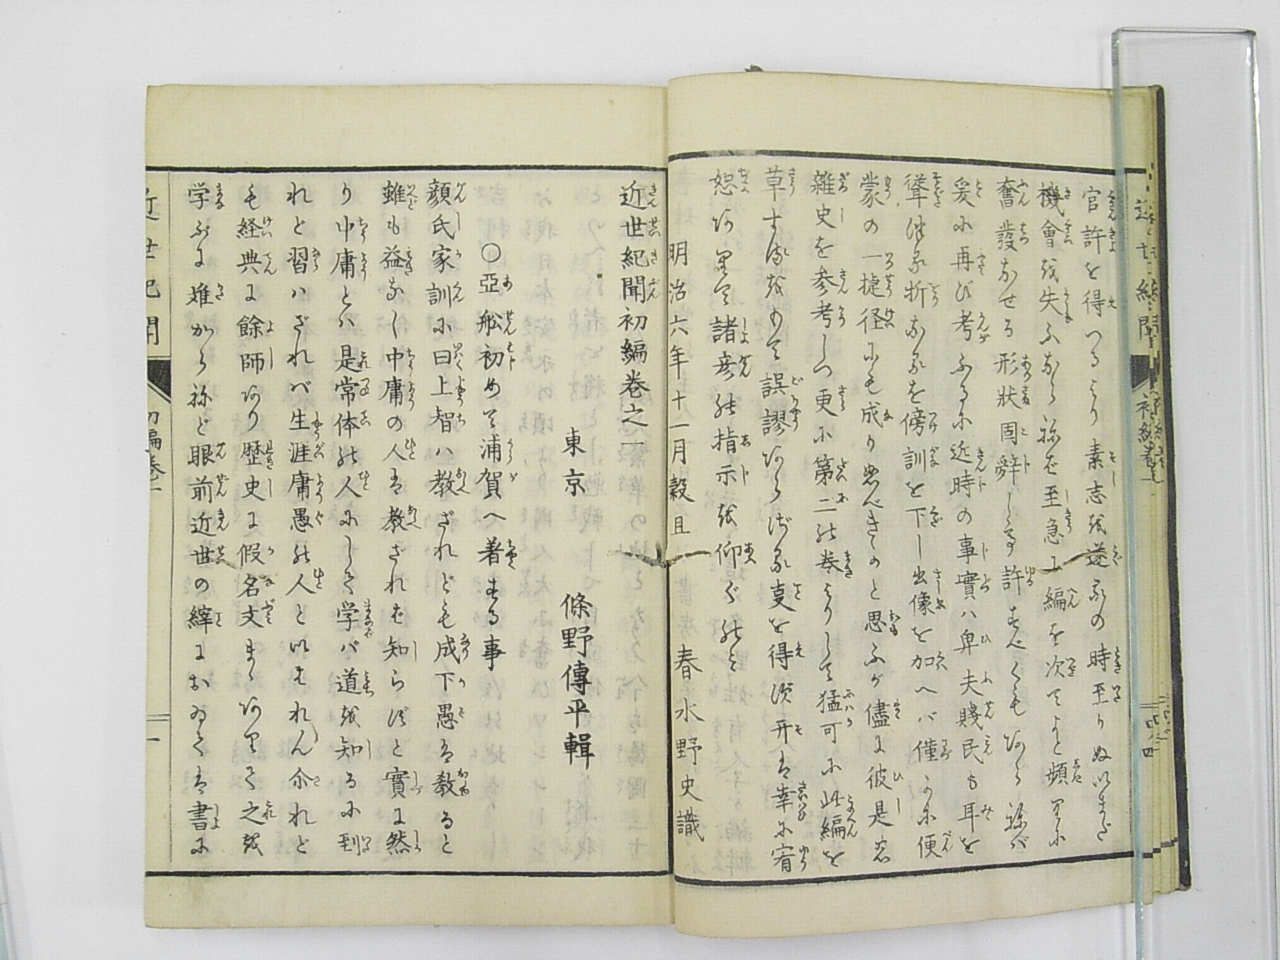 官許を得つるより素志を遂ふの時至りぬ以まだ
機會を失ふなら祢ど至急に編を次てよと頻りに
奮發なせる形狀固辞しる許すべくもあら祢バ
爰に再び考ふるに近時の事實ハ卑夫賤民も耳を
傍訓を下し出像を加へバ僅かに便
蒙の一捷径にも成り思べきかと思ふが儘に彼是
雜史を參考しつ更に第二の巻よりして猛可に此編を
草するをもて誤謬あらざるを得ず开は幸に宥
恕あり て諸彦の指示を仰ぐのと
明治六年十一月穀旦
春水野史識
近世紀聞初編巻之一
東京 條野傳平輯
〇亞舩初めて浦賀へ著する事
顔氏家訓に曰上智ハ教ざれども成下愚は教ると
雖も益なし中庸の人は教ざれは知らずと實に然
り中庸とハ是常体の人にして学バ道を知るに到
れと習ハざれバ生涯庸愚の人と以はれん尒れと
も経典に餘師あり歴史に假名文まゝありて之を
学ぶに難から祢ど眼前近世の縡におゐては書に
近世紀聞 初編巻一 一